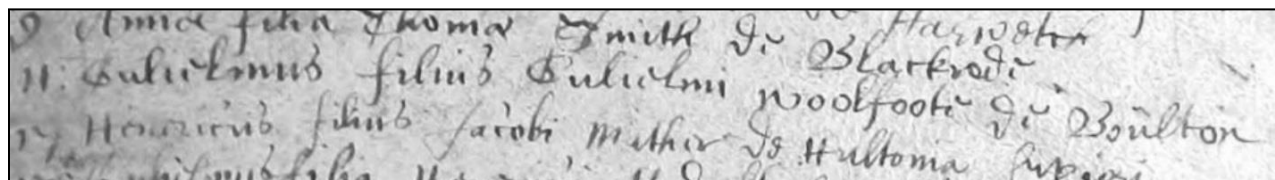 9 Annae filia Thomae Smith de Blackrode
11. Gulielmus filius Gulielmi Woolfoote de Boulton
17 Henricus filius Jacobi Mather de Hultonia
filia